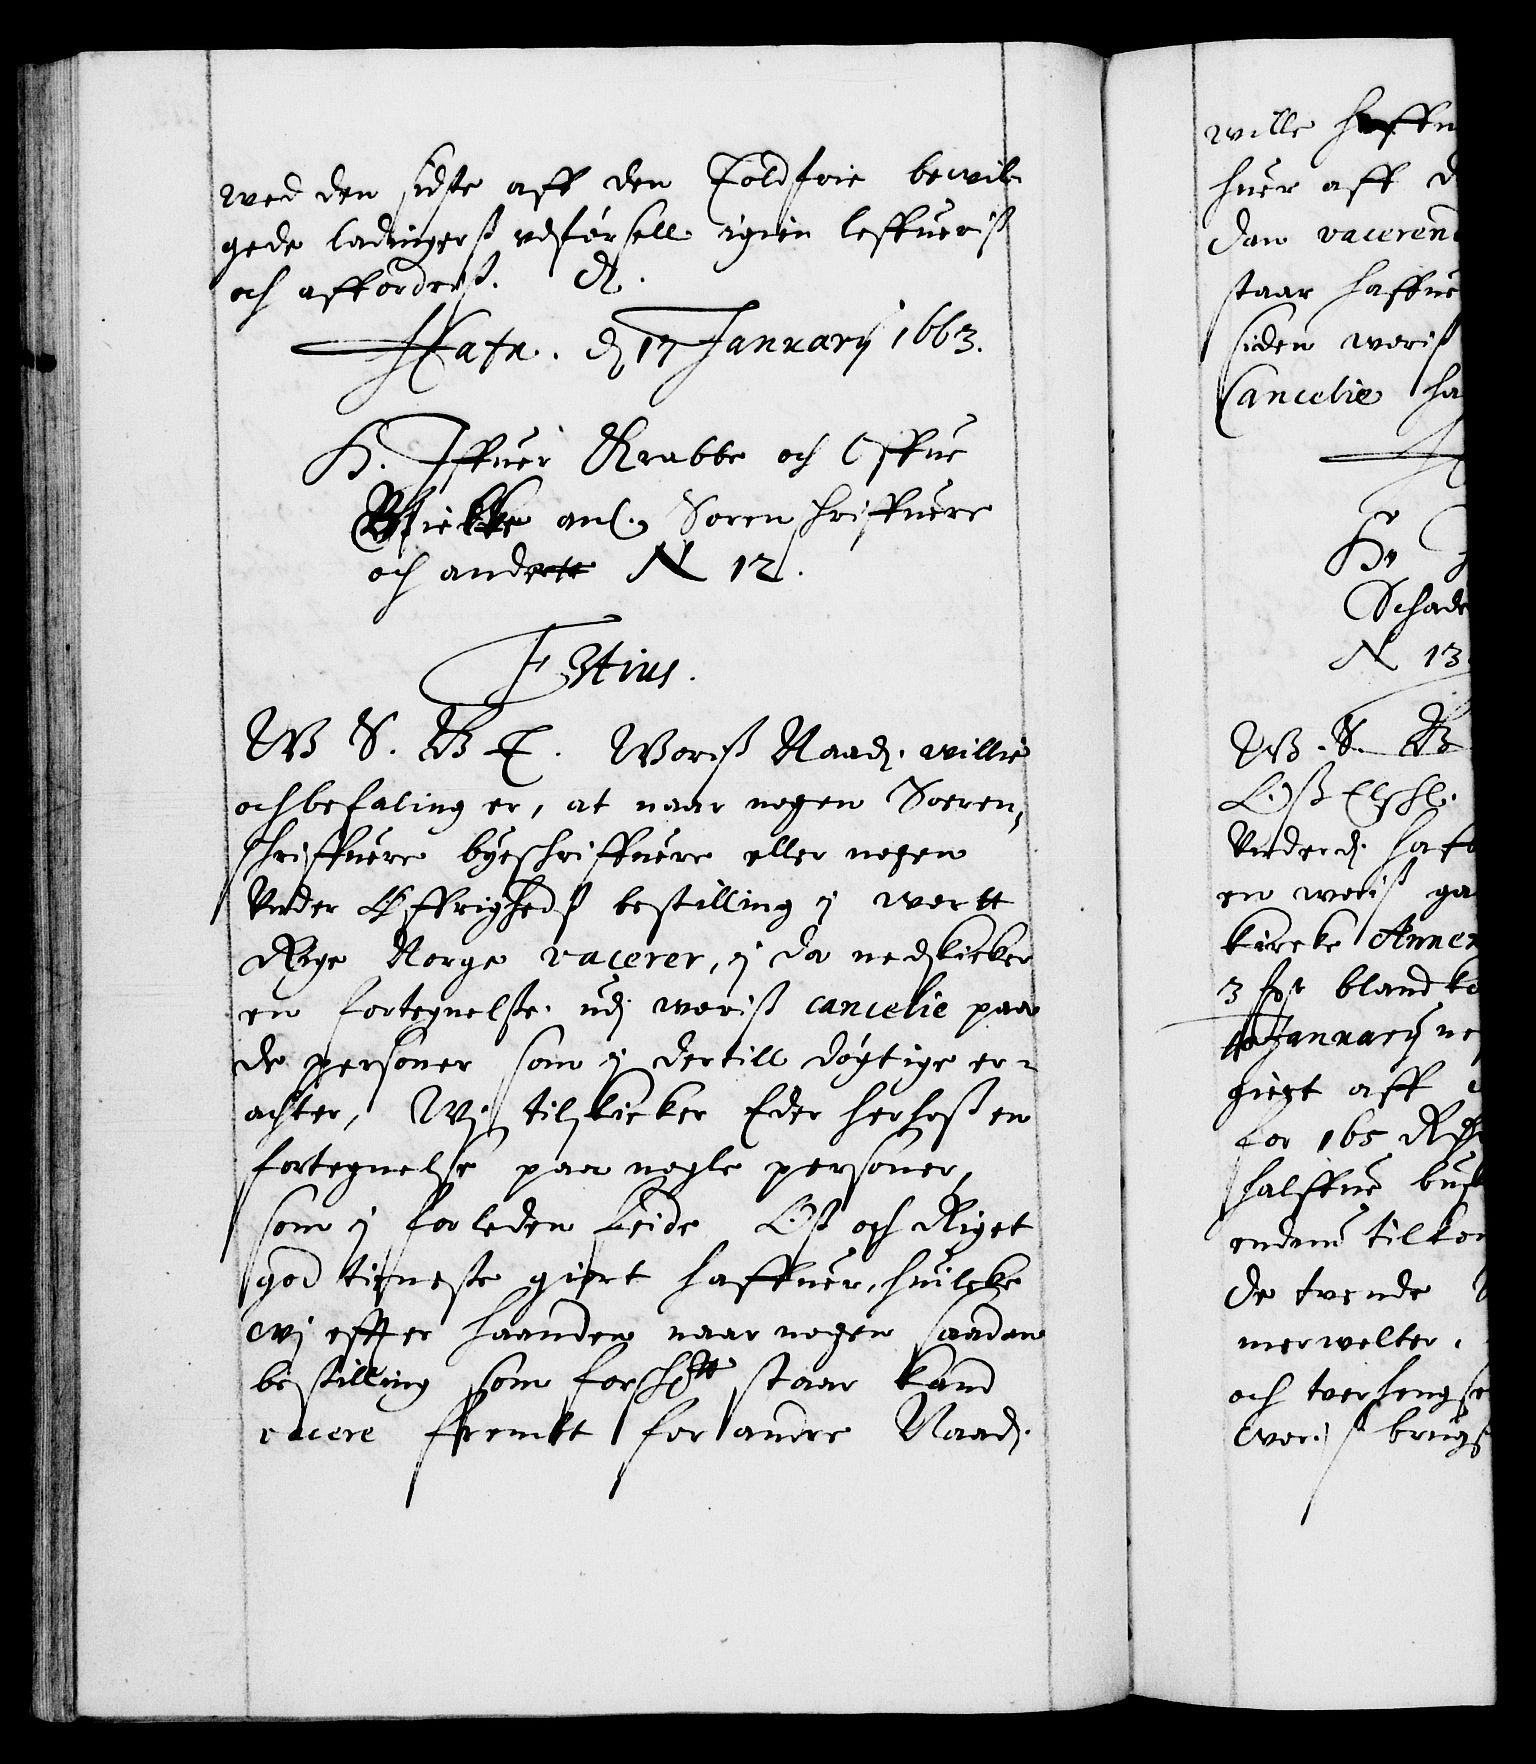 wed den sidste aff den Toldfrie bewil-
gede ladningers udførsell igien leffueris
och affordris. A.
Hafn. d 17 Januarij 1663.
H. Iffuer Krabbe och Offue
Bielke anl. Soren schriffuere
och andere N 12.
F 3tius.
W S. B E. Woris Naad. willie
och befaling er, at naar nogen Soeren-
schriffuere byeschriffuere eller nogen
Under Øffrigheds bestilling i wortt
Rige Norge vacerer, i da nedskicker
en fortegnelse udj woris cancelie paa
de personer som i dertill døgtige er-
achter, Wj tilskicker Eder herhos en
fortegnelse paa nogle personer,
som i forleden Feide Oss och Riget
god tieneste giort haffuer, huilcke
wj effter haanden naar nogen saadan
bestilling som forschrtt staar kand
vacere frembt for andre Naad.
wille haffu
huer aff d
dan vacerend
staar haffue
siden woris
Cancelie ha
Schade
N 13
W. S. B
Oss Elskl.
Underd. haf
en woris ga
kircke Annex
bland
Januarij ne
giort aff
for 165 R
halffue
endeni tilko
de tvende
merwelter.
och tverhengse
woris brugs